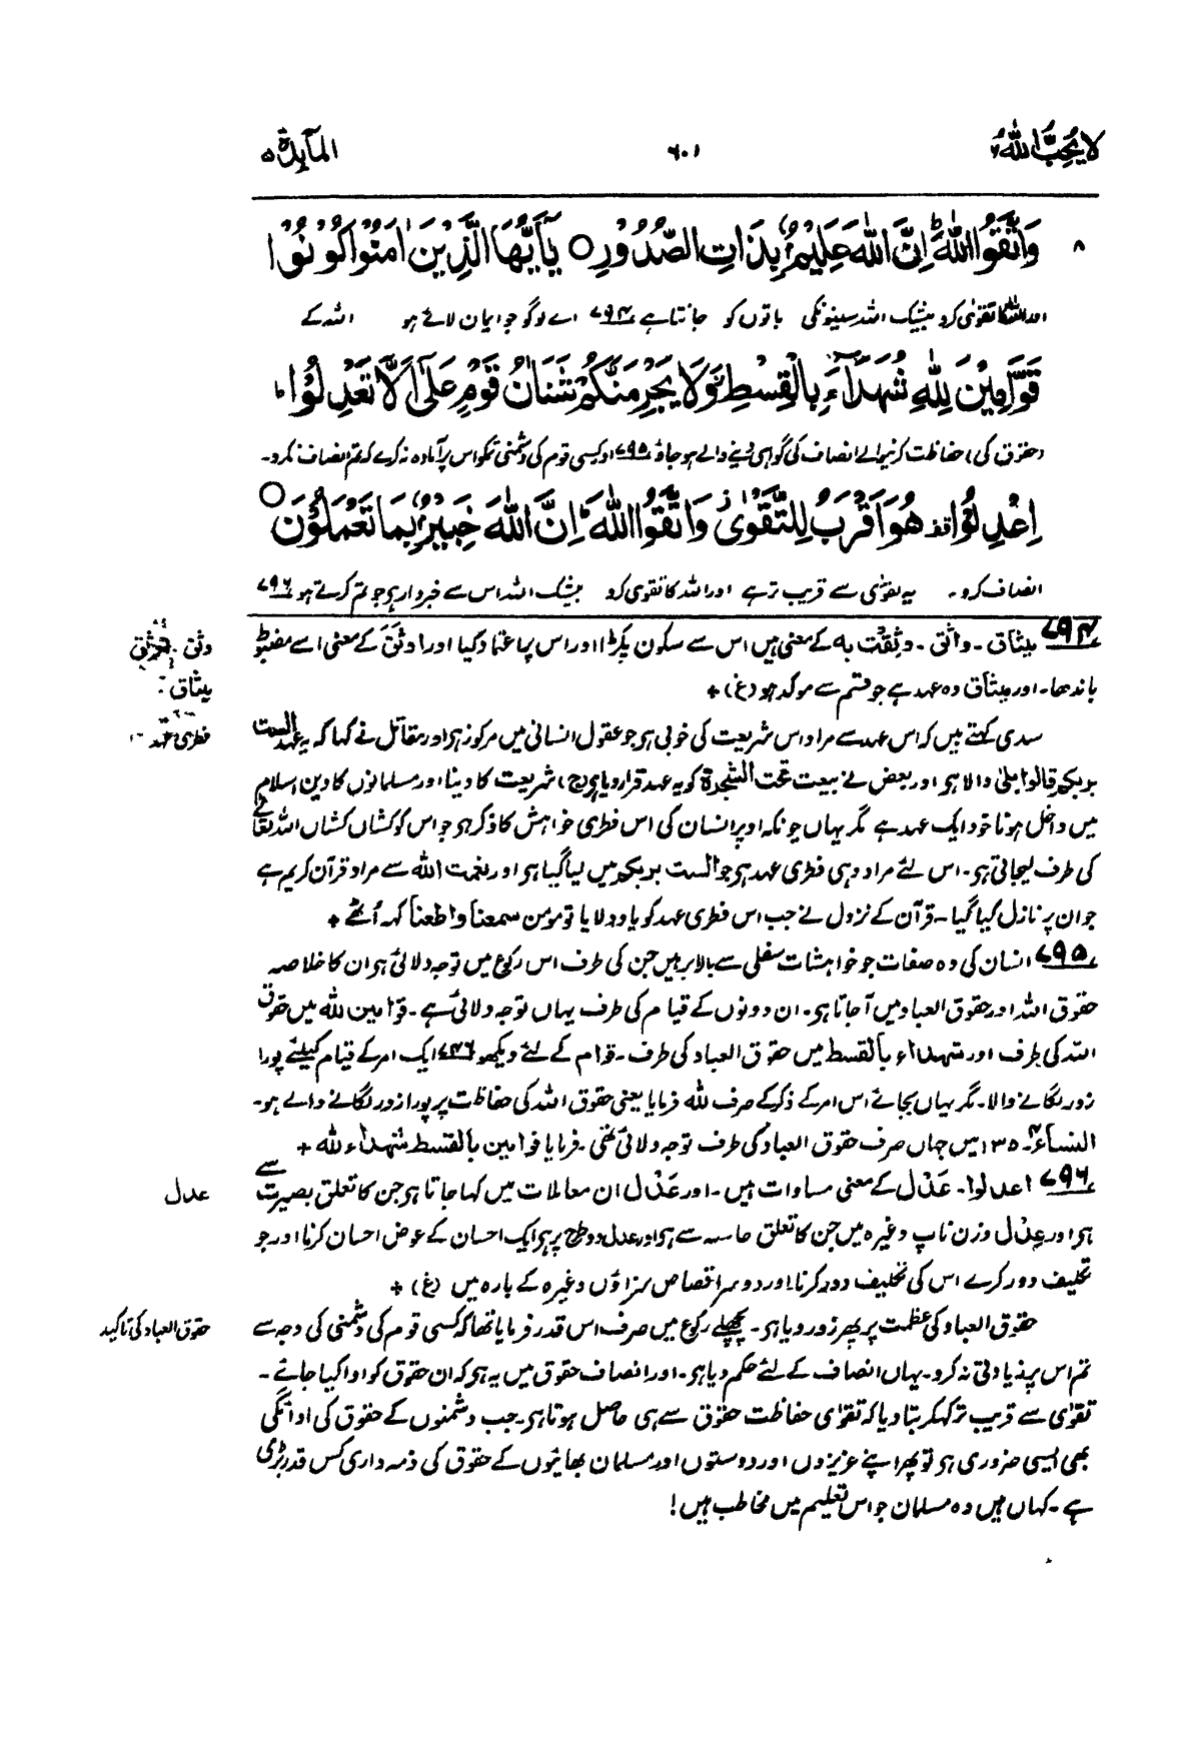 لا یحب اللہ ۶
۶۰۱
المآىِٕدة ۵
وَاتَّقُوا اللّٰهَ ؕ اِنَّ اللّٰهَ عَلِیْمٌۢ بِذَاتِ الصُّدُوْرِ ○ یٰۤاَیُّهَا الَّذِیْنَ اٰمَنُوْا كُوْنُوْا
۸
اور اللہ کا تقویٰ کرو بیشک اللہ سینونکی باتوں کو جانتا ہے ۷۹۴ اے لوگو جو ایمان لائے ہو اللہ کے
قَوّٰمِیْنَ لِلّٰهِ شُهَدَآءَ بِالْقِسْطِ ؗ وَلَا یَجْرِمَنَّكُمْ شَنَاٰنُ قَوْمٍ عَلٰۤی اَلَّا تَعْدِلُوْا ؕ
(حقوق کی) حفاظت کرنیوالے انصاف کی گواہی دینے والے ہو جاؤ ۷۹۵ اور کسی قوم کی دشمنی تمکو اس پر آمادہ نہ کرے کہ تم انصاف نہ کرو۔
اِعْدِلُوْا ۫ هُوَ اَقْرَبُ لِلتَّقْوٰی ؗ وَاتَّقُوا اللّٰهَ ؕ اِنَّ اللّٰهَ خَبِیْرٌۢ بِمَا تَعْمَلُوْنَ ○
انصاف کرو۔ یہ تقویٰ سے قریب تر ہے اور اللہ کا تقویٰ کرو بیشک اللہ اس سے خبردار ہے جو تم کرتے ہو ۷۹۶
۷۹۴ میثاق۔ واثق۔ وثِقْت بہ کے معنی ہیں اس سے سکون پکڑا اور اس پر اعتماد کیا اور اوثَقَ کے معنی اسے مضبوط
وثق۔
باندھا۔ اور میثاق وہ عہد ہے جو قسم سے موکد ہو (غ) +
میثاق
سدی کہتے ہیں کہ اس عہد سے مراد اس شریعت کی خوبی ہے جو عقول انسانی میں مرکوز ہے اور مقاتل نے کہا کہ یہ عہد الست
فطری عہد
بربکم قالوا بلیٰ والا ہے اور بعض نے بیعت تحت الشجرۃ کو یہ عہد قرار دیا ہے (ج) شریعت کا دینا اور مسلمانوں کا دین اسلام
میں داخل ہونا خود ایک عہد ہے مگر یہاں چونکہ اوپر انسان کی اس فطری خواہش کا ذکر ہے جو اس کو کشاں کشاں اللہ تعالےٰ
کی طرف لیجاتی ہے۔ اس لئے مراد وہی فطری عہد ہے جو الست بربکم میں لیا گیا ہے اور نعمت اللہ سے مراد قرآن کریم ہے
جو ان پر نازل کیا گیا۔ قرآن کے نزول نے جب اس فطری عہد کو یاد دلایا تو مومن سمعنا واطعنا کہہ اُٹھے +
۷۹۵ انسان کی وہ صفات جو خواہشات سفلی سے بالا تر ہیں جن کی طرف اس رکوع میں توجہ دلائی ہے ان کا خلاصہ
حقوق اللہ اور حقوق العباد میں آجاتا ہے۔ ان دونوں کے قیام کی طرف یہاں توجہ دلائی ہے۔ قوامین للہ میں حقوق
اللہ کی طرف اور شہداء بالقسط میں حقوق العباد کی طرف۔ قوام کے لئے دیکھو ۷۴۶ ایک امر کے قیام کیلئے پورا
زور لگانے والا۔ مگر یہاں بجائے اس امر کے ذکر کے صرف للہ فرمایا یعنی حقوق اللہ کی حفاظت پر پورا زور لگانے والے ہو۔
النساء ۴۔ ۱۳۵ میں جہاں صرف حقوق العباد کی طرف توجہ دلائی تھی۔ فرمایا قوامین بالقسط شہداء للہ +
۷۹۶ اعدلوا۔ عَدْل کے معنی مساوات ہیں۔ اور عَدْل ان معاملات میں کہا جاتا ہے جن کا تعلق بصیرت سے
عدل
ہے اور عِدْل وزن ناپ وغیرہ میں جن کا تعلق حاسہ سے ہے اور عدل دو طرح پر ہے ایک احسان کے عوض احسان کرنا اور جو
تکلیف دور کرے اس کی تکلیف دور کرنا۔ اور دوسرا قصاص سزاؤں وغیرہ کے بارہ میں (غ) +
حقوق العباد کی عظمت پر پھر زور دیا ہے۔ پچھلے رکوع میں صرف اس قدر فرمایا تھا کہ کسی قوم کی دشمنی کی وجہ سے
حقوق العباد کی تاکید
تم اس پر زیادتی نہ کرو۔ یہاں انصاف کے لئے حکم دیا ہے۔ اور انصاف حقوق میں یہ ہے کہ ان حقوق کو ادا کیا جائے۔
تقویٰ سے قریب تر کہکر بتا دیا کہ تقویٰ حفاظت حقوق سے ہی حاصل ہوتا ہے۔ جب دشمنوں کے حقوق کی ادائگی
بھی ایسی ضروری ہے تو پھر اپنے عزیزوں اور دوستوں اور مسلمان بھائیوں کے حقوق کی ذمہ داری کس قدر بڑی
ہے۔ کہاں ہیں وہ مسلمان جو اس تعلیم میں مخاطب ہیں!